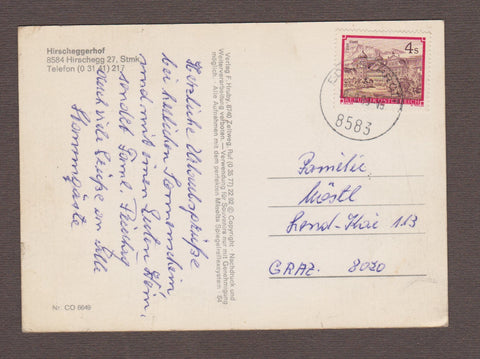 Hirscheggerhof
8584 Hirschegg 27, Stmk.
Telefon (0 31 41) 217
Herzliche Urlaubsgrüße
bei herrlichem Sonnenschein
und mit einem Guten Heim,
sendet Faml.
Auch viele Grüße an alle
Stammgäste
Nr. CO 6649
Verlag F. Hruby, 8740 Zeltweg, Ruf (0 35 77) 22 92 © Copyright - Nachdruck und
Weiterverarbeitung verboten. — Verwendung für Souvenirs nur mit Genehmigung
möglich. Alle Aufnahmen mit dem perfekten Minolta Spiegelreflexsystem - 84
4 S
REPUBLIK ÖSTERREICH
8583
Familie
Möstl
Lend-Kai 113
GRAZ. 8020